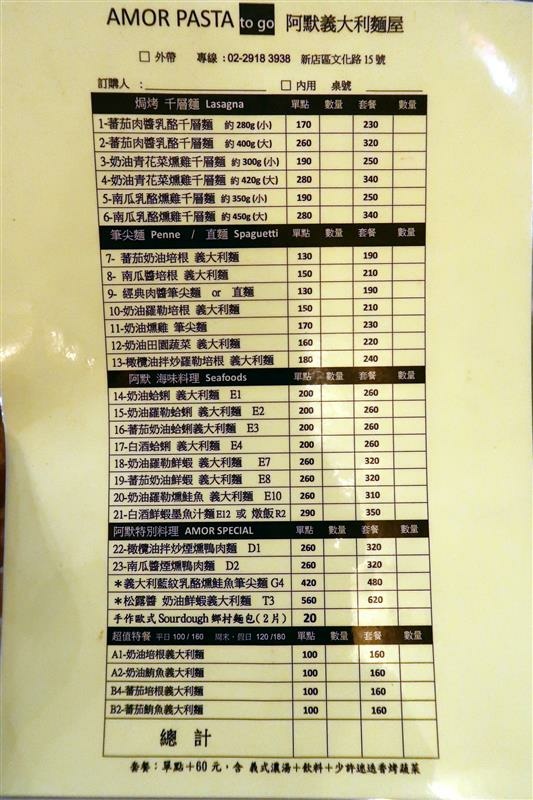 AMOR PASTA to go 阿默義大利麵屋
☐ 外帶 專線：02-2918 3938 新店區文化路 15 號
訂購人：____________ ☐ 內用 桌號 ________
焗烤 千層麵 Lasagna 單點 數量 套餐 數量
1-蕃茄肉醬乳酪千層麵 約 280g (小) 170 230
2-蕃茄肉醬乳酪千層麵 約 400g (大) 260 320
3-奶油青花菜燻雞千層麵 約 300g (小) 190 250
4-奶油青花菜燻雞千層麵 約 420g (大) 280 340
5-南瓜乳酪燻雞千層麵 約 350g (小) 190 250
6-南瓜乳酪燻雞千層麵 約 450g (大) 280 340
筆尖麵 Penne / 直麵 Spaguetti 單點 數量 套餐 數量
7- 蕃茄奶油培根 義大利麵 130 190
8- 南瓜醬培根 義大利麵 150 210
9- 經典肉醬筆尖麵 or 直麵 130 190
10-奶油羅勒培根 義大利麵 150 210
11-奶油燻雞 筆尖麵 170 230
12-奶油田園蔬菜 義大利麵 160 220
13-橄欖油拌炒羅勒培根 義大利麵 180 240
阿默 海味料理 Seafoods 單點 數量 套餐 數量
14-奶油蛤蜊 義大利麵 E1 200 260
15-奶油羅勒蛤蜊 義大利麵 E2 200 260
16-蕃茄奶油蛤蜊義大利麵 E3 200 260
17-白酒蛤蜊 義大利麵 E4 200 260
18-奶油羅勒鮮蝦 義大利麵 E7 260 320
19-蕃茄奶油鮮蝦 義大利麵 E8 260 320
20-奶油羅勒燻鮭魚 義大利麵 E10 260 310
21-白酒鮮蝦墨魚汁麵 E12 或 燉飯 R2 290 350
阿默特別料理 AMOR SPECIAL 單點 數量 套餐 數量
22-橄欖油拌炒煙燻鴨肉麵 D1 260 320
23-南瓜醬煙燻鴨肉麵 D2 260 320
＊義大利藍紋乳酪燻鮭魚筆尖麵 G4 420 480
＊松露醬 奶油鮮蝦義大利麵 T3 560 620
手作歐式 Sourdough 鄉村麵包(2 片) 20
超值特餐 平日 100 / 160 周末、假日 120 /180 單點 數量 套餐 數量
A1-奶油培根義大利麵 100 160
A2-奶油鮪魚義大利麵 100 160
B4-蕃茄培根義大利麵 100 160
B2-蕃茄鮪魚義大利麵 100 160
總 計
套餐：單點＋60 元，含 義式濃湯＋飲料＋少許迷迭香烤蔬菜